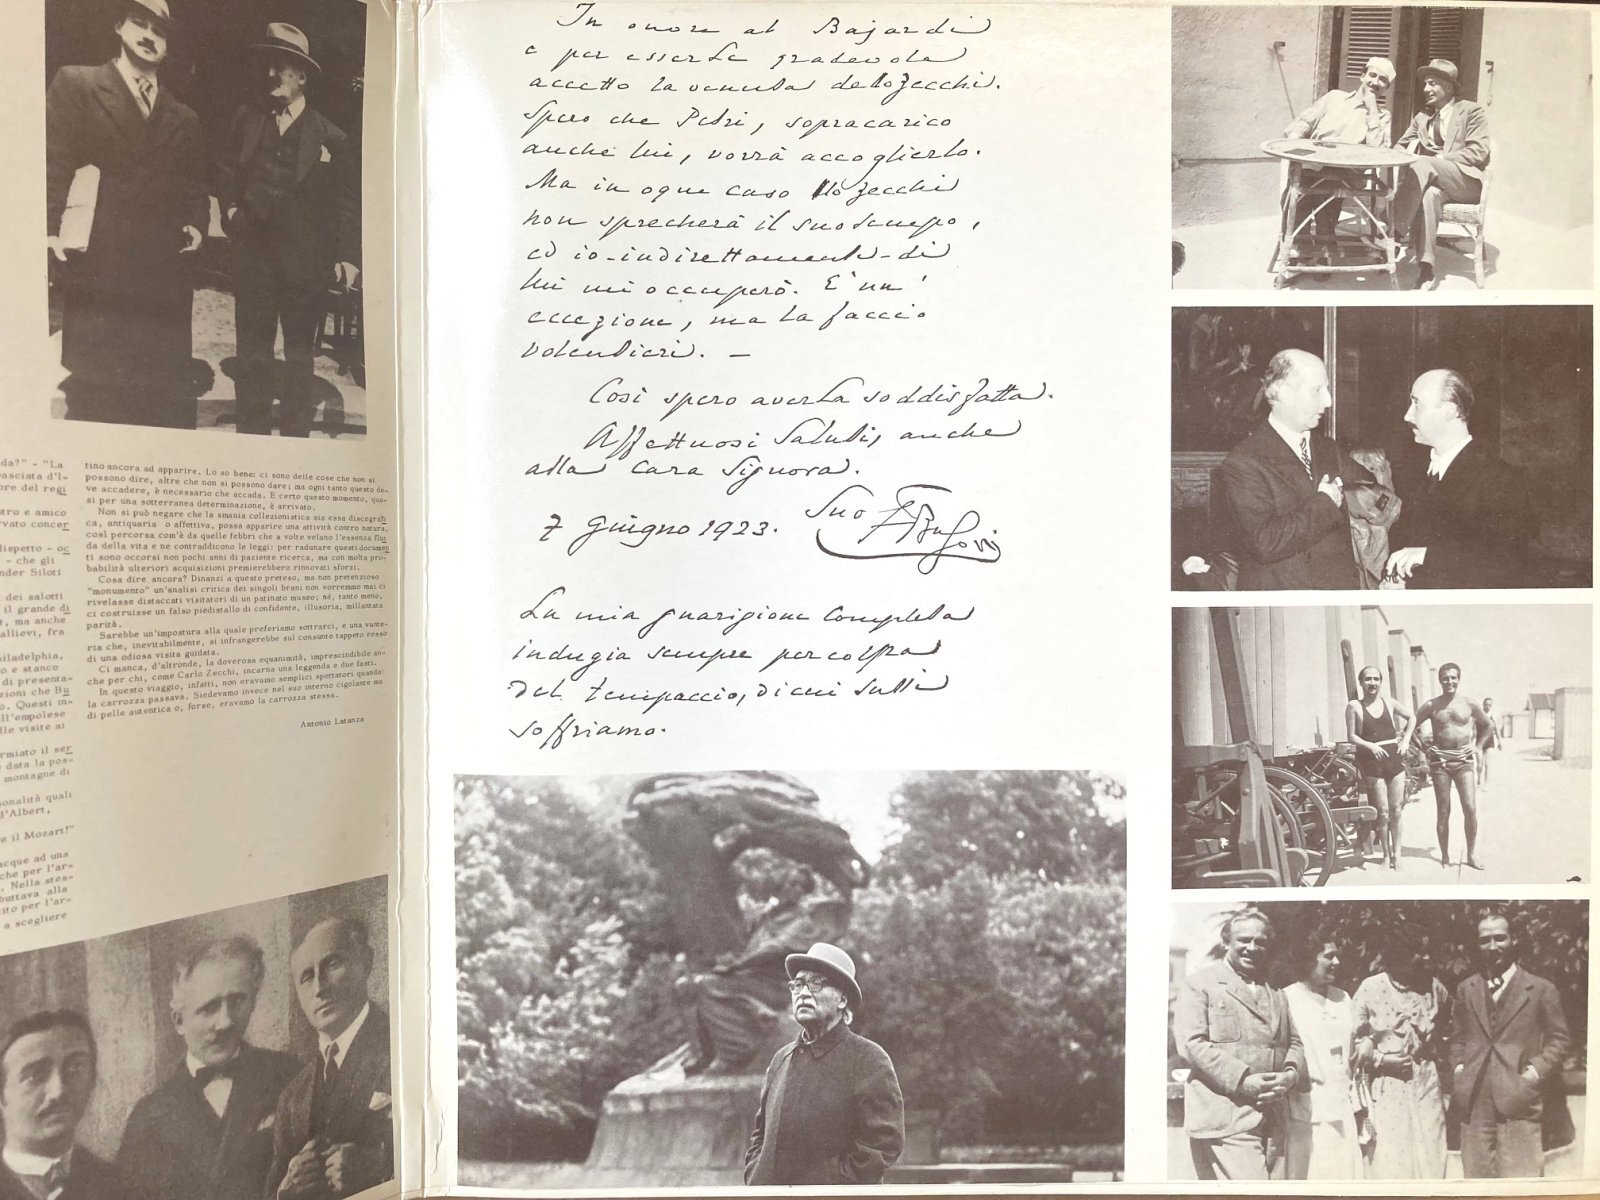 oda?" - "La
basciata d'I-
ore del regi
stro e amico
rvato concer
dispetto - oc
- che gli
nder Siloti
dei salotti
il grande di
t, ma anche
allievi, fra
hiladelphia,
o e stanco
di presenta-
zioni che Bu
o. Questi in-
ll'empolese
lle visite ai
rmiato il ser
data la pos-
montagne di
onalità quali
d'Albert,
e il Mozart!"
acque ad una
che per l'ar-
. Nella stes-
buttava alla
cito per l'ar-
a scegliere
tino ancora ad apparire. Lo so bene: ci sono delle cose che non si
possono dire, altre che non si possono dare; ma ogni tanto questo de-
ve accadere, è necessario che accada. E certo questo momento, qua-
si per una sotterranea determinazione, è arrivato.
Non si può negare che la smania collezionistica sia essa discografi
ca, antiquaria o affettiva, possa apparire una attività contro natura,
così percorsa com'è da quelle febbri che a volte velano l'essenza flui
da della vita e ne contraddicono le leggi: per radunare questi documen
ti sono occorsi non pochi anni di paziente ricerca, ma con molta pro-
babilità ulteriori acquisizioni premierebbero rinnovati sforzi.
Cosa dire ancora? Dinanzi a questo preteso, ma non pretenzioso
"monumento" un'analisi critica dei singoli brani non vorremmo mai ci
rivelasse distaccati visitatori di un patinato museo; né, tanto meno,
ci costruisse un falso piedistallo di confidente, illusoria, millantata
parità.
Sarebbe un'impostura alla quale preferiamo sottrarci, e una vante-
ria che, inevitabilmente, si infrangerebbe sul consunto tappeto rosso
di una odiosa visita guidata.
Ci manca, d'altronde, la doverosa equanimità, imprescindibile an-
che per chi, come Carlo Zecchi, incarna una leggenda e due fasti.
In questo viaggio, infatti, non eravamo semplici spettatori quando
la carrozza passava. Siedevamo invece nel suo interno cigolante ma
di pelle autentica o, forse, eravamo la carrozza stessa.
Antonio Latanza
In onore al Bajardi
e per esserLe gradevole
accetto la venuta dello Zecchi.
Spero che Petri, sopracarico
anche lui, vorrà accoglierlo.
Ma in ogni caso lo Zecchi
non sprecherà il suo tempo,
ed io - indirettamente - di
lui mi occuperò. È un'
eccezione, ma la faccio
volentieri. —
Così spero averLa soddisfatta.
Affettuosi Saluti, anche
alla cara Signora.
Suo FBusoni
7 Giugno 1923.
La mia guarigione completa
indugia sempre per colpa
del tempaccio, di cui tutti
soffriamo.